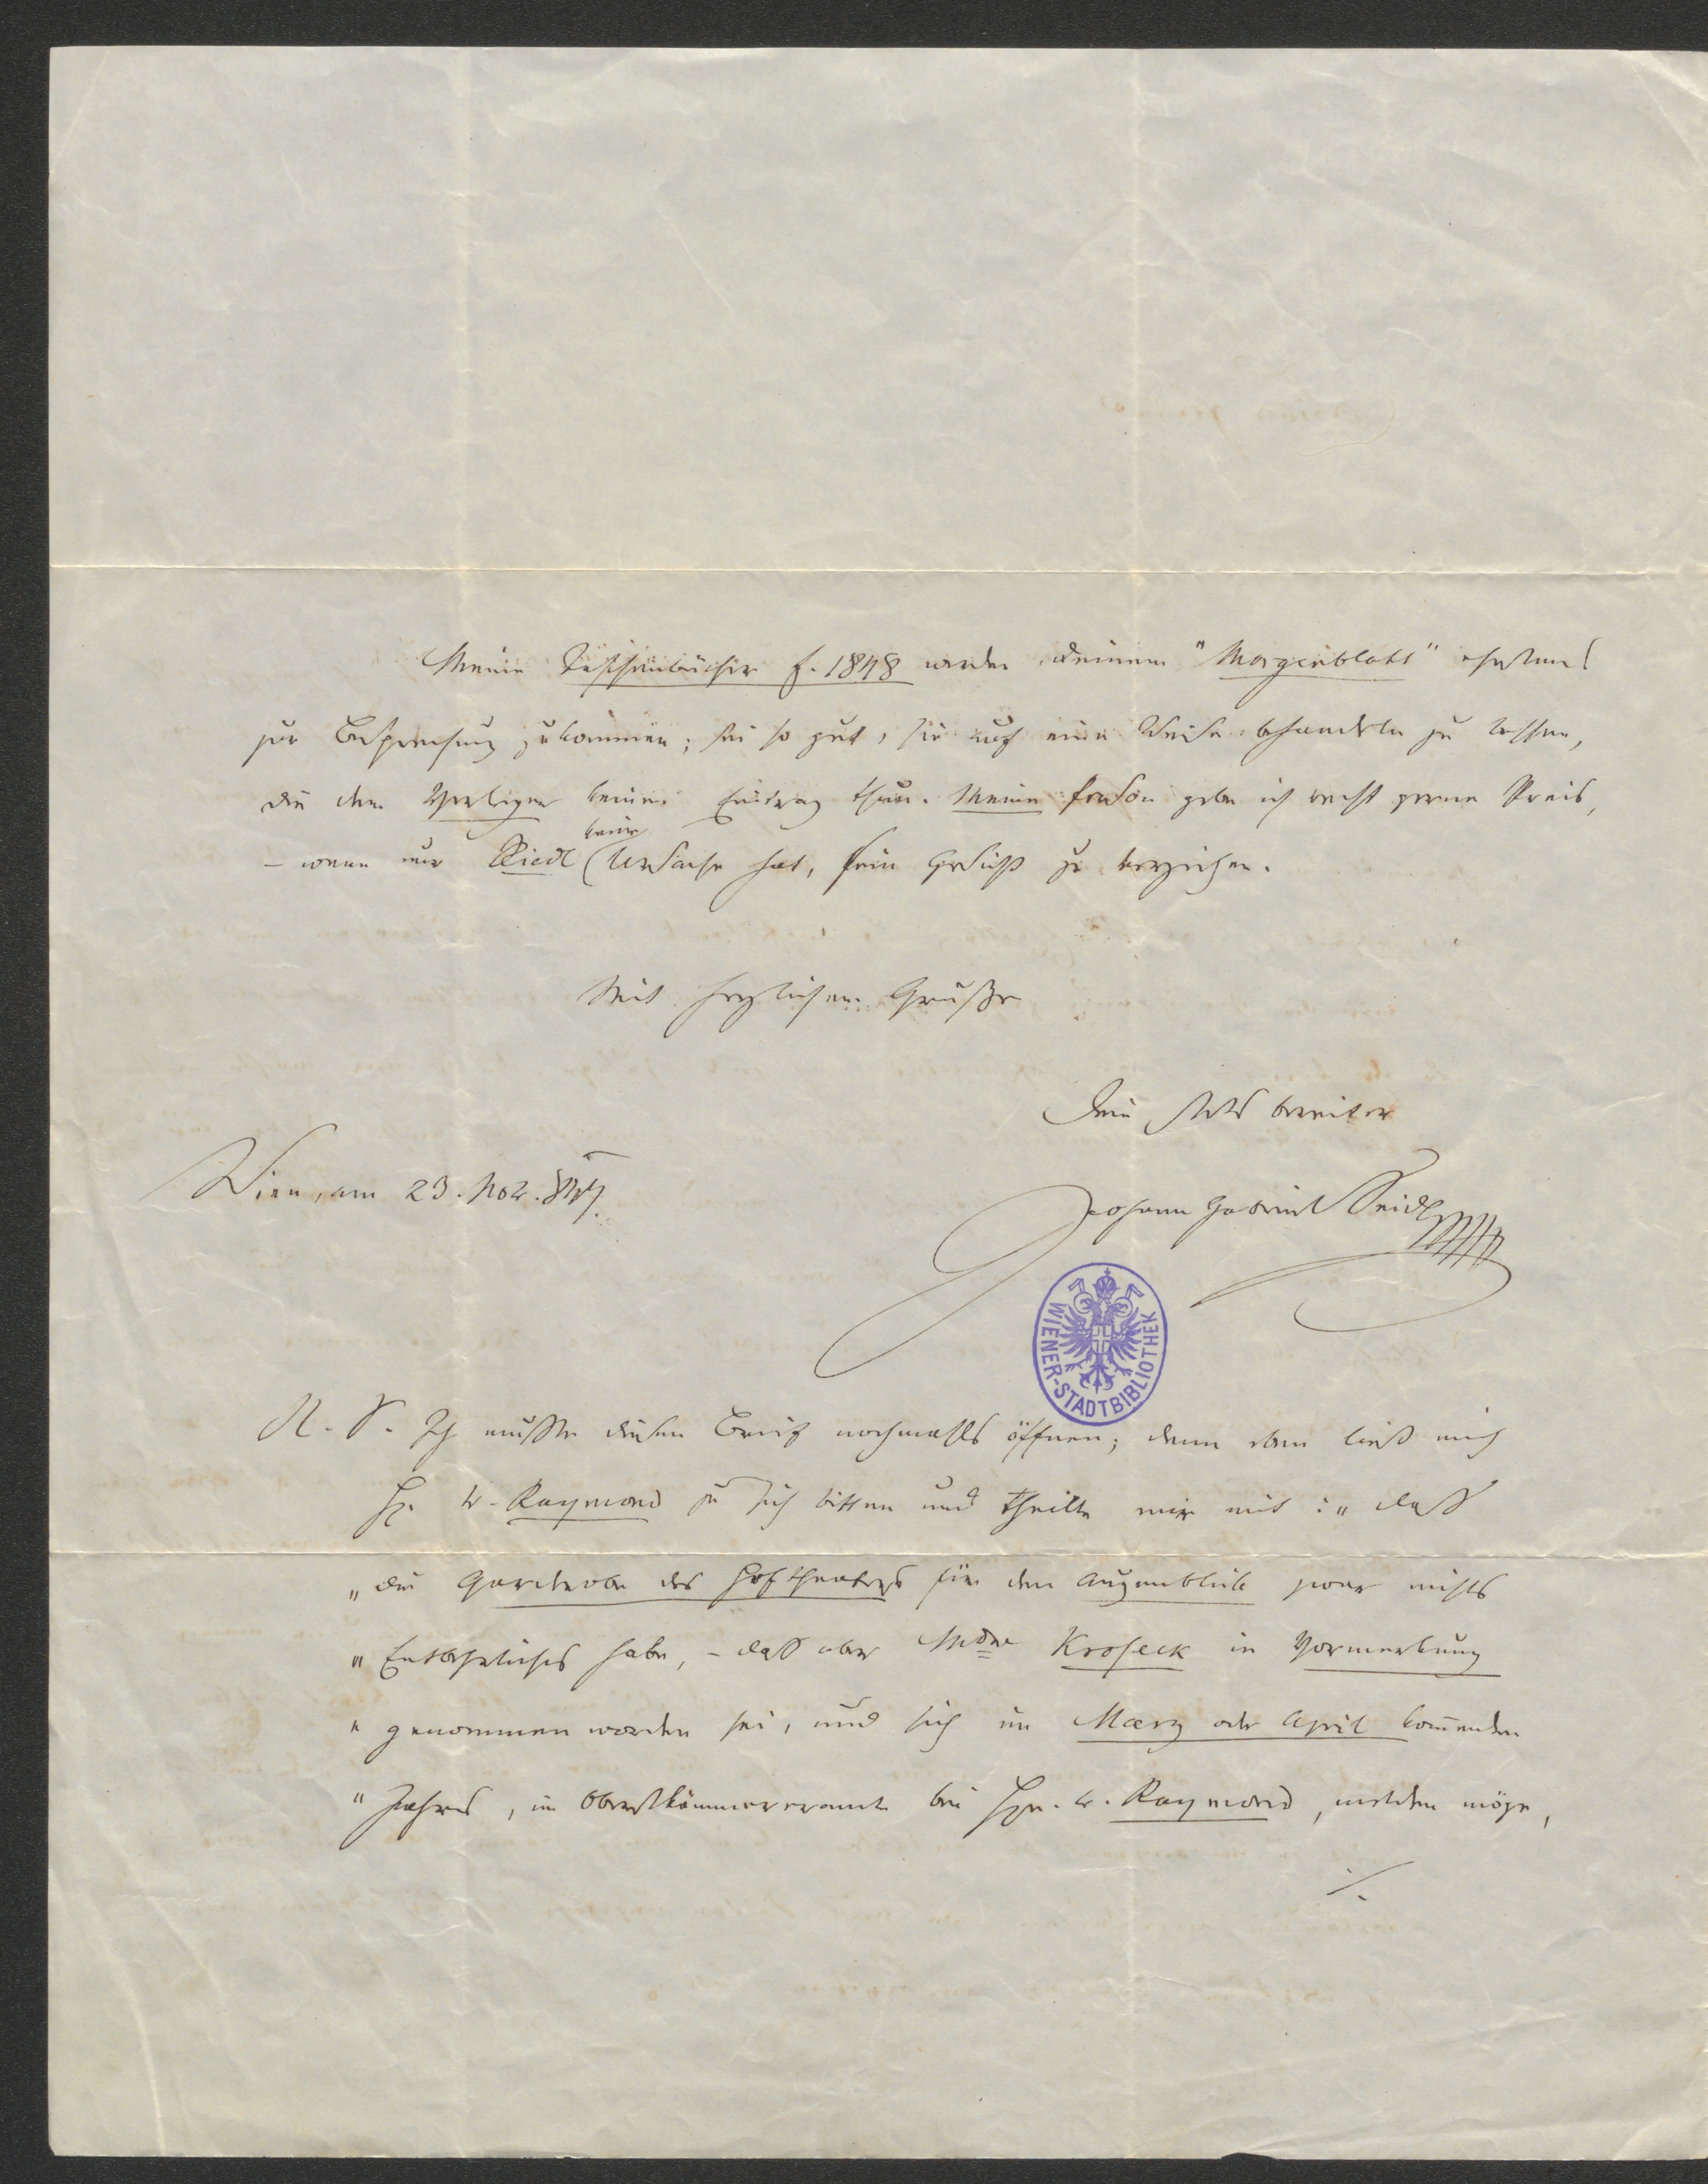 Meine Taschenbücher f. 1848 werden Deinem "Morgenblatt" ehestens
zur Besprechung zukommen; sei so gut, sie auf eine Weise behandeln zu lassen,
die dem Verleger keinen Eintrag thun. Meine Person gebe ich recht gerne Preis,
– wenn nur Riedl keine Ursache hat, sein Gesicht zu verziehen.
Mit herzlichem Gruße
Dein stets bereiter
Wien, am 23. Nov.
Johann Gabriel Seidl
WIENER-STADTBIBLIOTHEK
N. S. Ich mußte diesen Brief nochmahls öffnen; denn eben ließ mich
Hr. v. Raymond zu sich bitten und theilte mir mit: „daß
„die Garderobe des Hoftheaters für den Augenblick zwar nichts
„Entbehrliches habe, – daß aber Mdme Kroseck in Vormerkung
„genommen worden sei, und sich im Maerz oder April kommenden
„Jahres, im Oberstkämmereramte bei Hrn. v. Raymond, melden möge,
./.